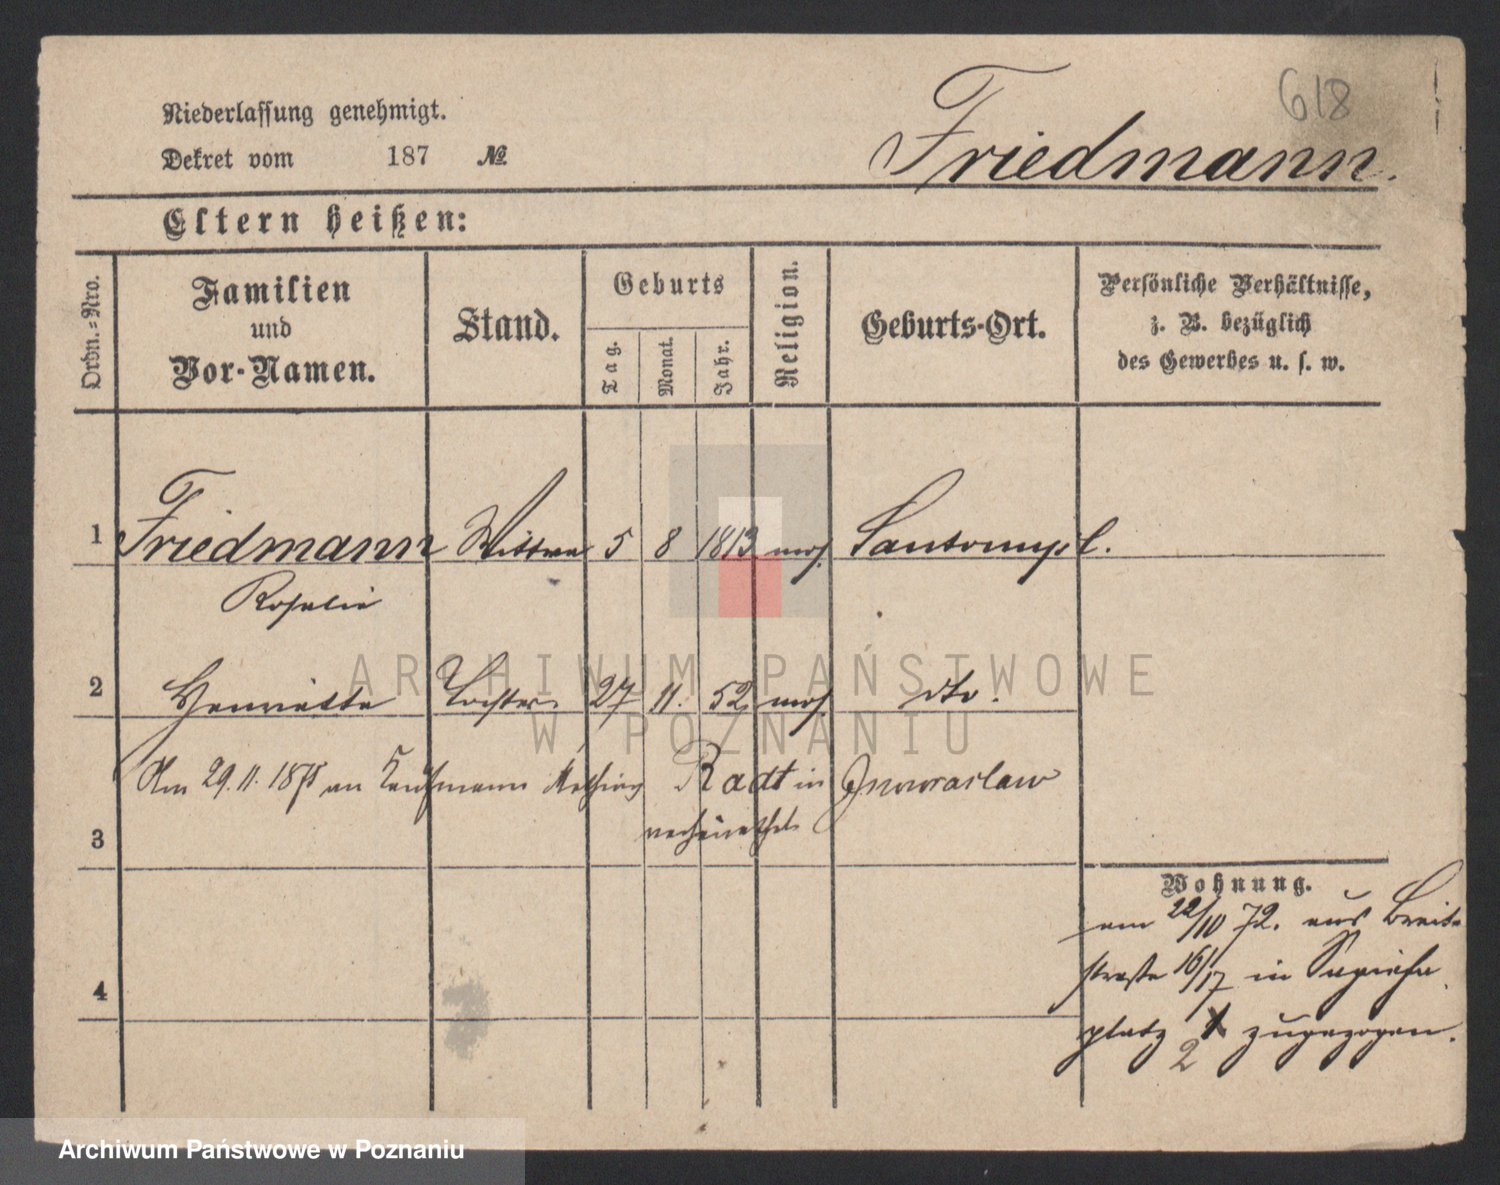 618
Niederlassung genehmigt.
Dekret vom 187 №
Friedmann.
Eltern heißen:
Ordn.-Nro.
Familien
und
Vor-Namen.
Stand.
Geburts
Tag.
Monat.
Jahr.
Religion.
Geburts-Ort.
Persönliche Verhältnisse,
z. B. bezüglich
des Gewerbes u. s. w.
1 Friedmann Wittwe 5 8 1813 mos. Santomysl.
Rosalie
2 Henriette Tochter 27 11. 52 mos. dto.
Am 29.11.1875 an Kaufmann Radt in Inowraclaw
3 verheirathet
Wohnung.
am 22/10 72. aus Breite-
straße 16/17 in Sapieha
4
platz 2 zugezogen.
ARCHIWUM PAŃSTWOWE
W POZNANIU
Archiwum Państwowe w Poznaniu